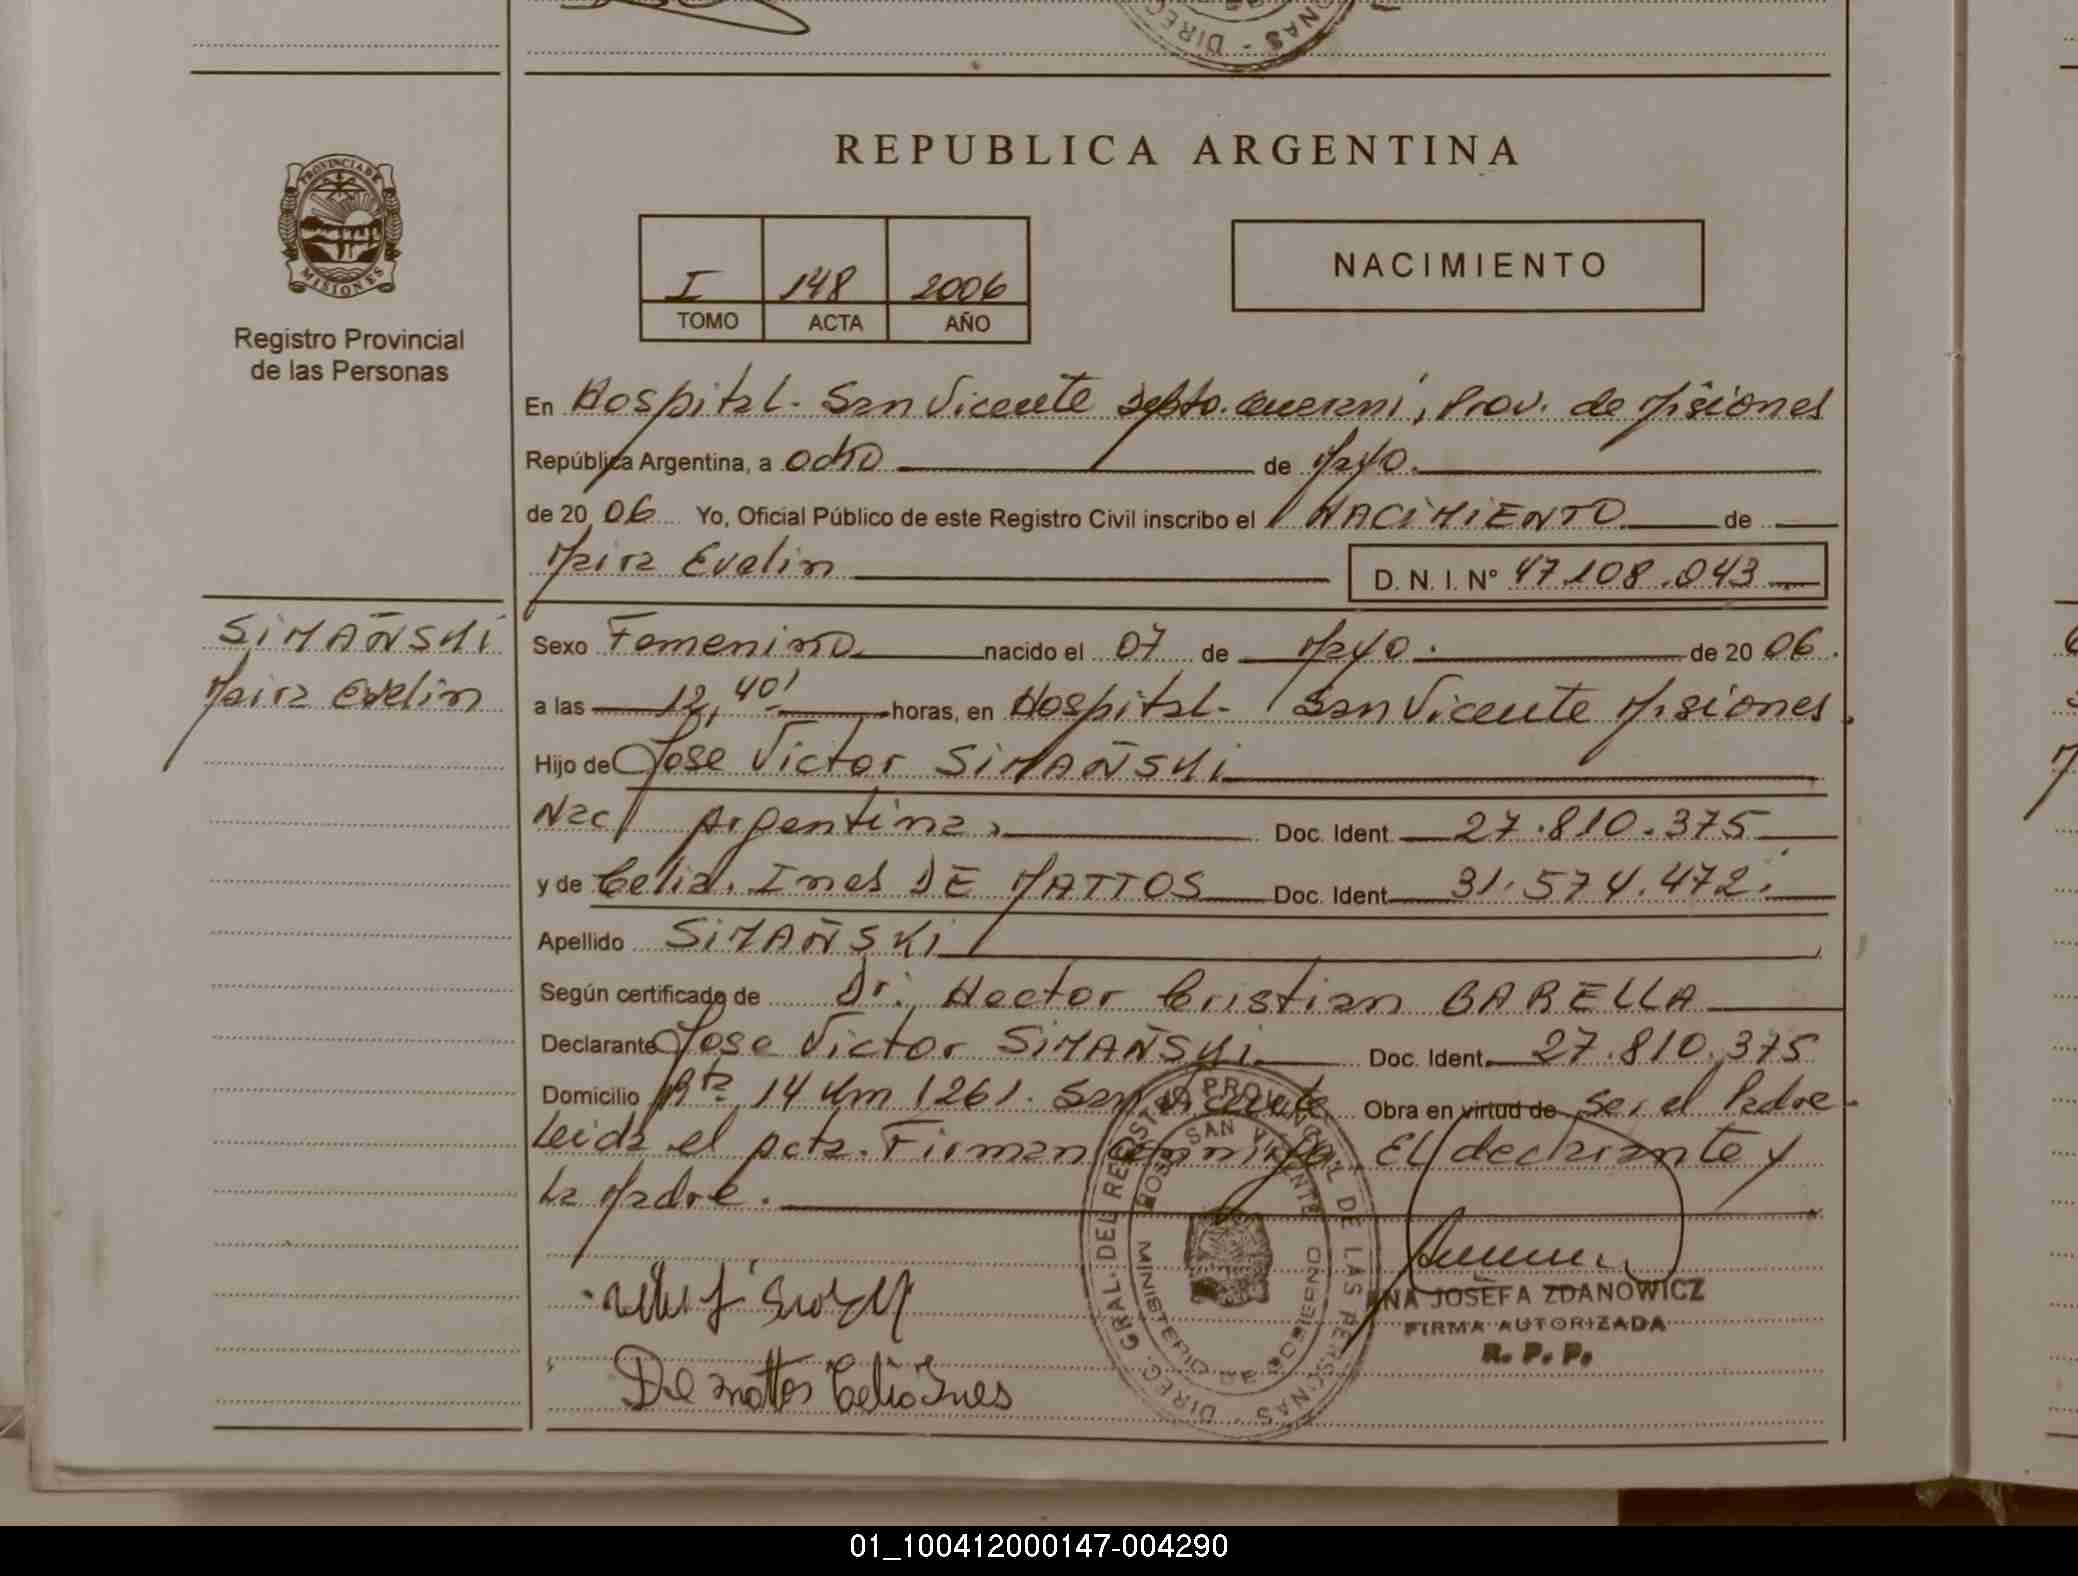 REPUBLICA ARGENTINA
PROVINCIA DE
MISIONES
Registro Provincial
de las Personas
I 148 2006
TOMO ACTA AÑO
NACIMIENTO
En Hospital - San Vicente Depto. Guarani, Prov. de Misiones
República Argentina, a ocho de Mayo.
de 20 06 Yo, Oficial Público de este Registro Civil inscribo el NACIMIENTO de
Maira Evelin D.N.I. N° 47.108.043
SIMAÑSKI
Maira Evelin
Sexo Femenino nacido el 07 de Mayo. de 20 06.
a las 12,40' horas, en Hospital - San Vicente Misiones.
Hijo de Jose Victor SIMAÑSKI
Nac/ Argentina, Doc. Ident. 27.810.375
y de Celia Ines DE MATTOS Doc. Ident. 31.574.472.
Apellido SIMAÑSKI
Según certificado de Dr. Hector Cristian BARELLA
Declarante Jose Victor SIMAÑSKI Doc. Ident. 27.810.375
Domicilio Rta 14 Km 1261. San Vicente Obra en virtud de ser el Padre
Leida el acta. Firman conmigo El declarante y
La Madre.
De mattos Celia Ines
DIREC. GRAL. DEL REGISTRO PROVINCIAL DE LAS PERSONAS
HOSP. SAN VICENTE
MINISTERIO DE GOBIERNO
ANA JOSEFA ZDANOWICZ
FIRMA AUTORIZADA
R. P. P.
01_100412000147-004290